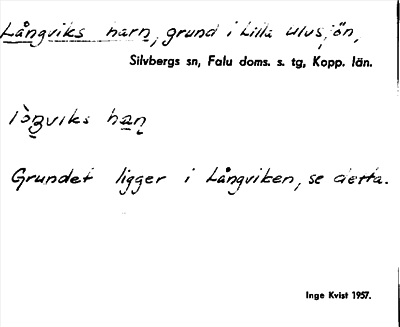 Långviks harn, grund i Lilla Ulvsjön,
Silvbergs sn, Falu doms. s. tg, Kopp. län.
viks han
Grundet ligger i Långviken, se detta.
Inge Kvist 1957.